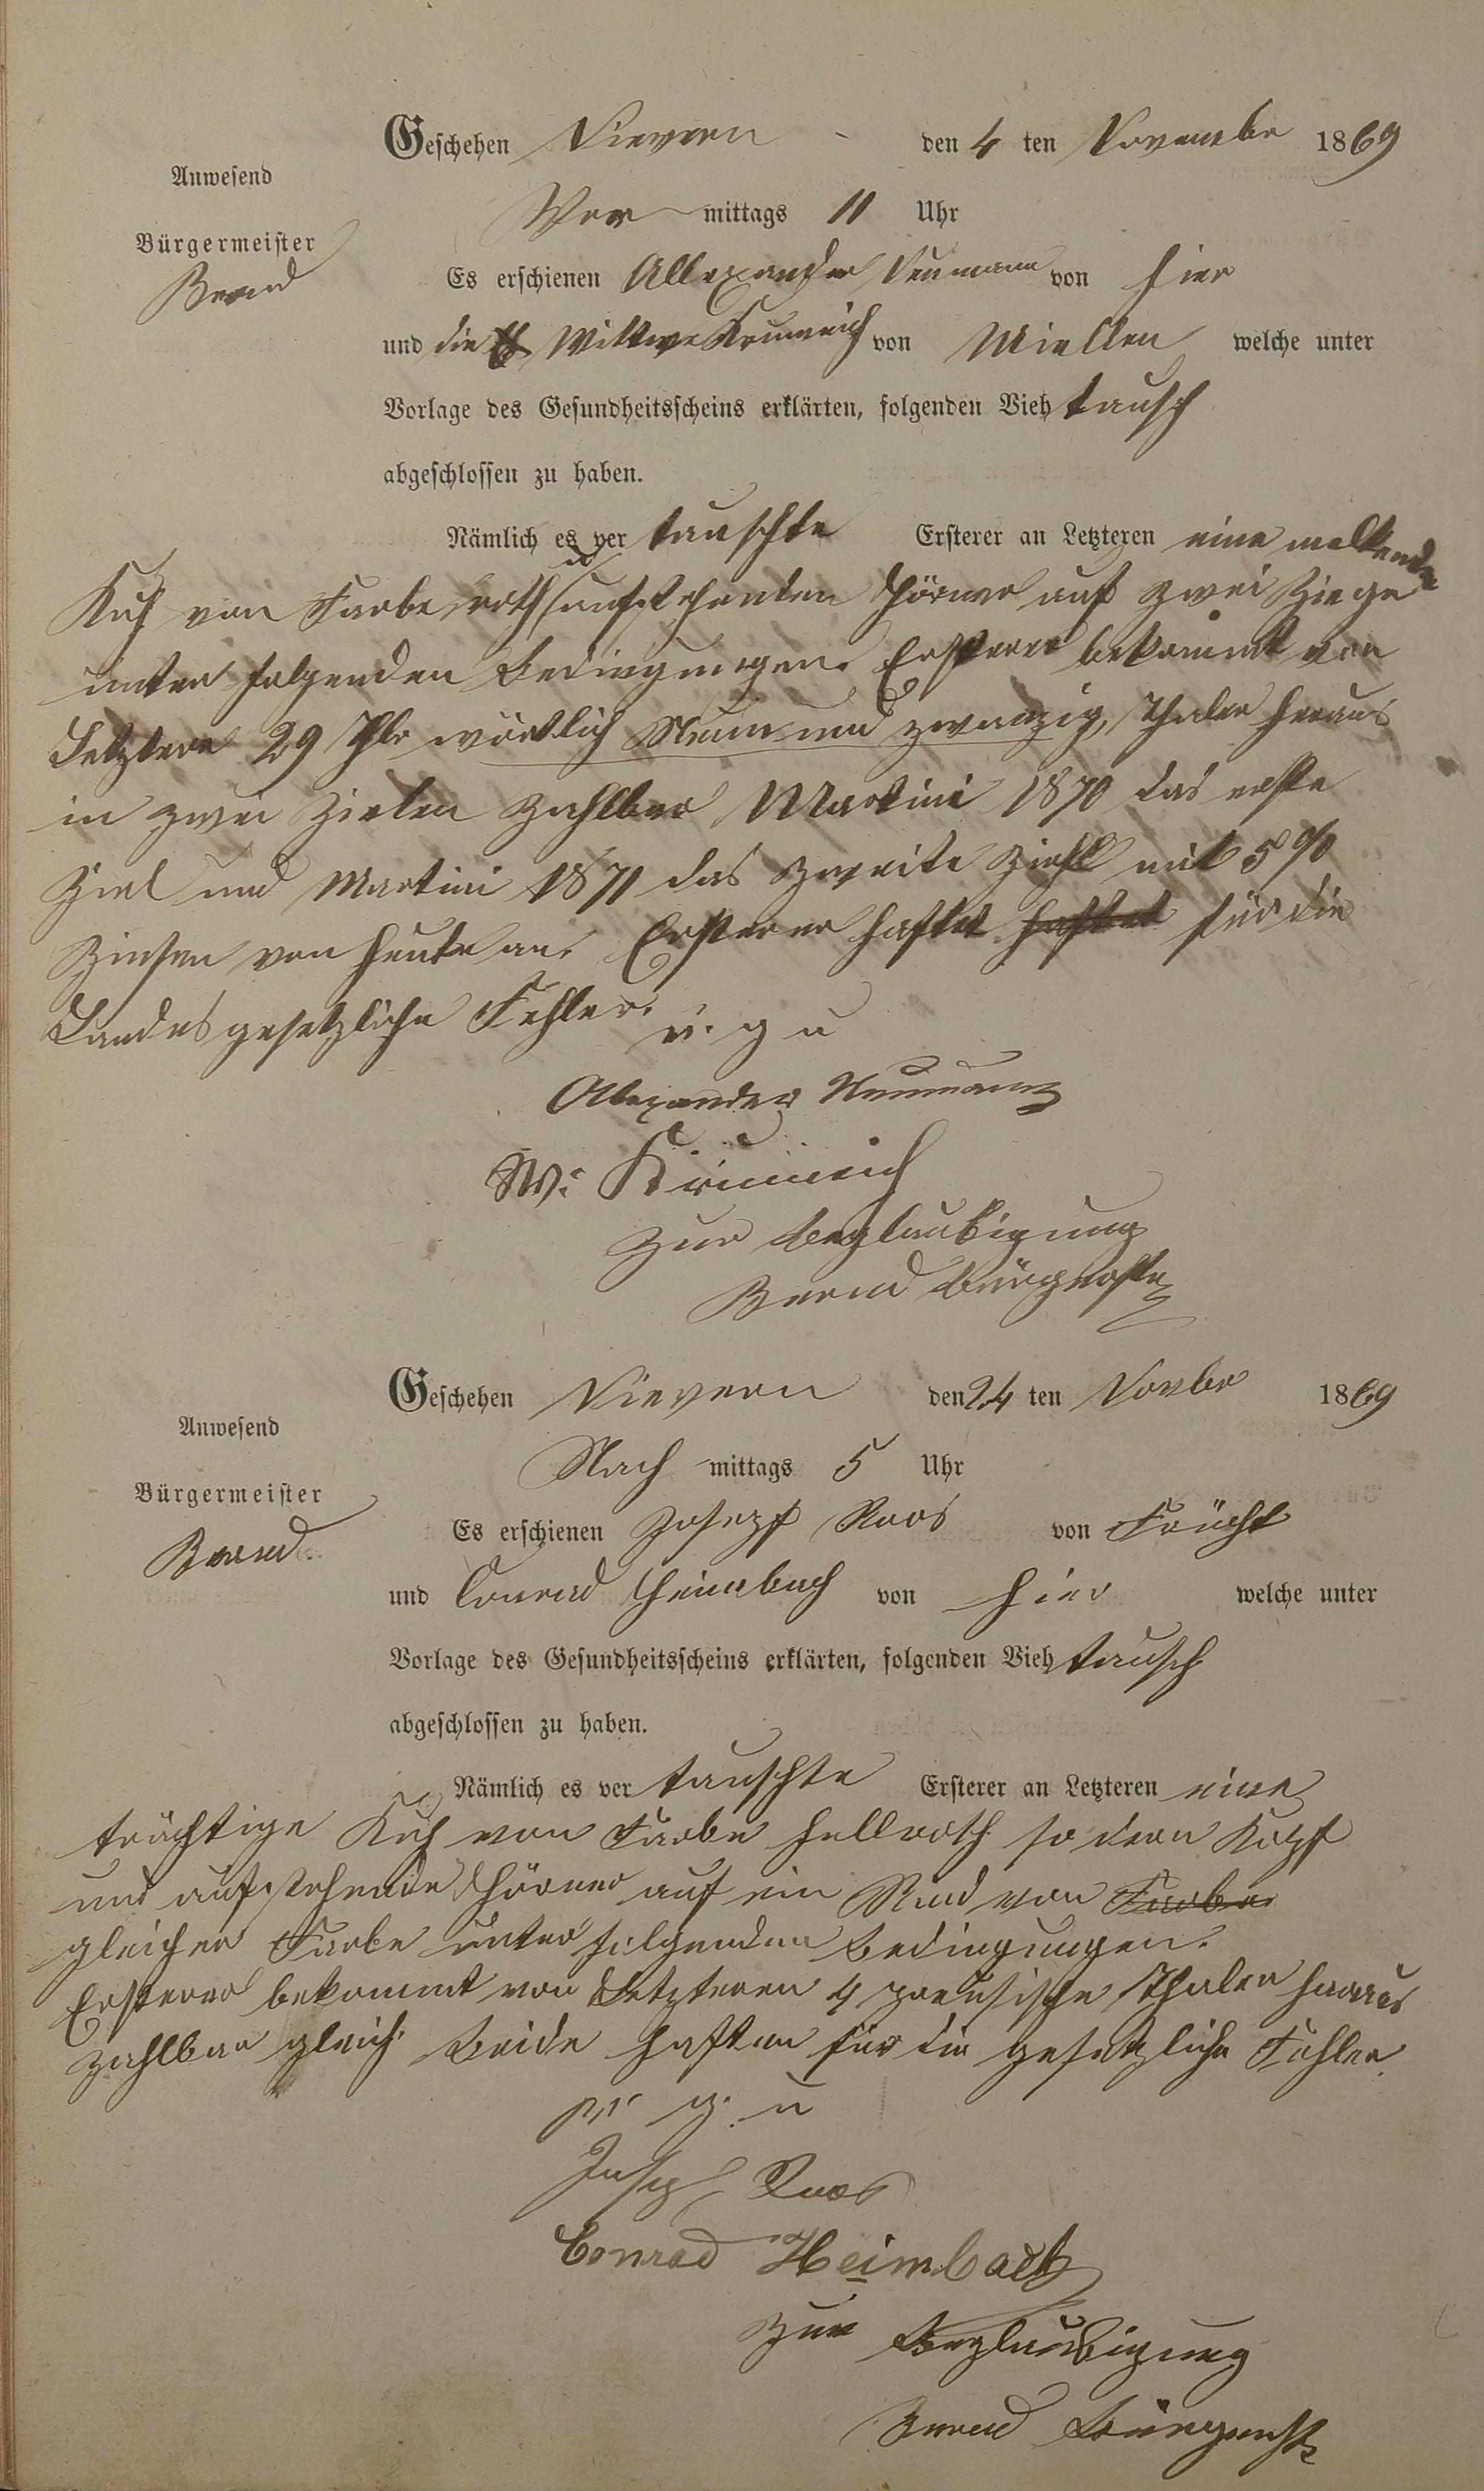 Geschehen Nievern den 4 ten Novembr 1869
Anwesend
Vor mittags 11 Uhr
Bürgermeister
Bernd
Es erschienen Allexander Neumann von hier
und die Wittwe von Miellen welche unter
Vorlage des Gesundheitsscheins erklärten, folgenden Vieh tausch
abgeschlossen zu haben.
Nämlich es ver tauschte Ersterer an Letzteren eine melkende
Kuh von Farbe roth aufstehenden Hörner auf zwei Ziege
unter folgenden Bedingungen. Ersterer bekommt von
Letztere 29 Thlr wörtlich Neun und zwanzig, Thaler heraus
in zwei Zielen Zahlbar Martini 1870 das erste
Ziel und Martini 1871 das zweite Ziehl mit 5 %
Zinsen von heute an. Ersterer haftet haftet für die
Landesgesetzliche Fehler.
v. g u
Alexander Neumann
W:
Zur Beglaubigung
Bernd Bürgermstr
Geschehen Nievern den 24 ten Novbr 1869
Anwesend
Nach mittags 5 Uhr
Bürgermeister
Bernd
Es erschienen Joseph Roos von Frücht
und Conrad Heimbach von hier welche unter
Vorlage des Gesundheitsscheins erklärten, folgenden Vieh tausch
abgeschlossen zu haben.
Nämlich es ver tauschte Ersterer an Letzteren eine
trächtige Kuh von Farbe hellroth Kopf
und aufstehende Hörner auf ein Rind von Farbe
gleicher Farbe unter folgenden Bedingungen.
Ersterer bekommt von Letzteren 4 preusische Thaler heraus
zahlbar gleich. Beide haften für die gesetzliche Fehler.
v. g. u
Joseph Roos
Conrad Heimbach
Zur Beglaubigung
Bernd Bürgermstr